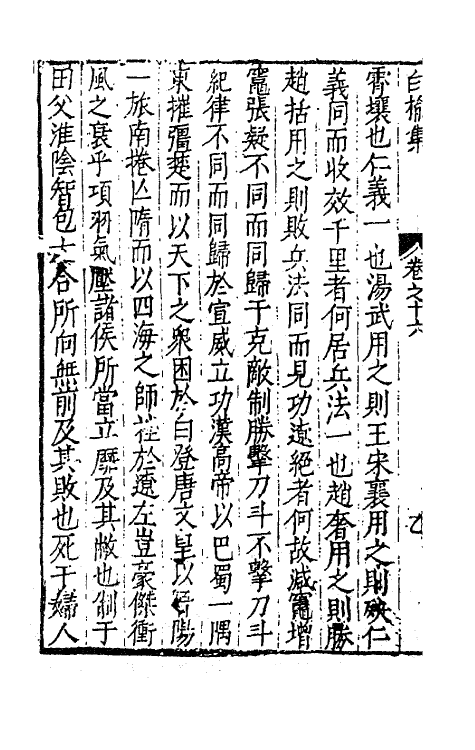 白榆集
卷之十六
霄壤也仁義一也湯武用之則王宋襄用之則殃仁
義同而收效千里者何居兵法一也趙奢用之則勝
趙括用之則敗兵法同而見功遼絕者何故減竈增
竈張疑不同而同歸于克敵制勝擊刀斗不擊刀斗
紀律不同而同歸於宣威立功漢高帝以巴蜀一隅
東摧彊楚而以天下之衆困於白登唐文皇以晉陽
一旅南捲亡隋而以四海之師挫於遼左豈豪傑衝
風之衰乎項羽氣壓諸侯所當立靡及其敝也制于
田父淮陰智包六合所向無前及其敗也死于婦人